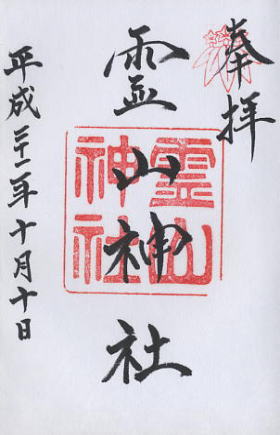 奉拝
霊山神社
霊山神社
平成二十二年十月十日